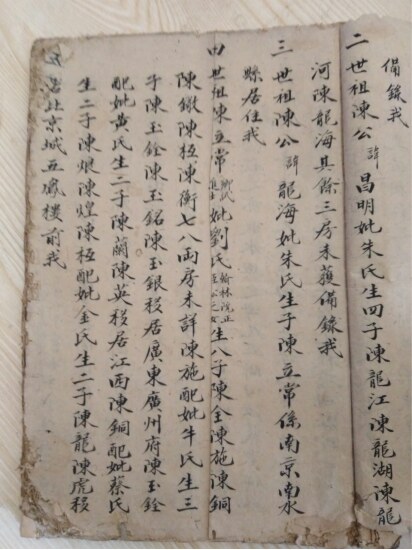 備錄我
二世祖陳公諱昌明妣朱氏生四子陳龍江陳龍湖陳龍
河陳龍海其餘三房未獲備錄我
三世祖陳公諱龍海妣朱氏生子陳立常係南京南水
縣居住我
世祖陳立常妣劉氏翰林院正生八子陳全陳施陳銅
陳陳極陳衡七八両房未詳陳施配妣牛氏生三
子陳玉銓陳玉銘陳玉銀移居廣東廣州府陳玉銓
配妣黃氏生二子陳蘭陳英移居江西陳銅配妣蔡氏
生二子陳烺陳煌陳極配妣金氏生二子陳龍陳虎移
居北京城五鳳樓前我